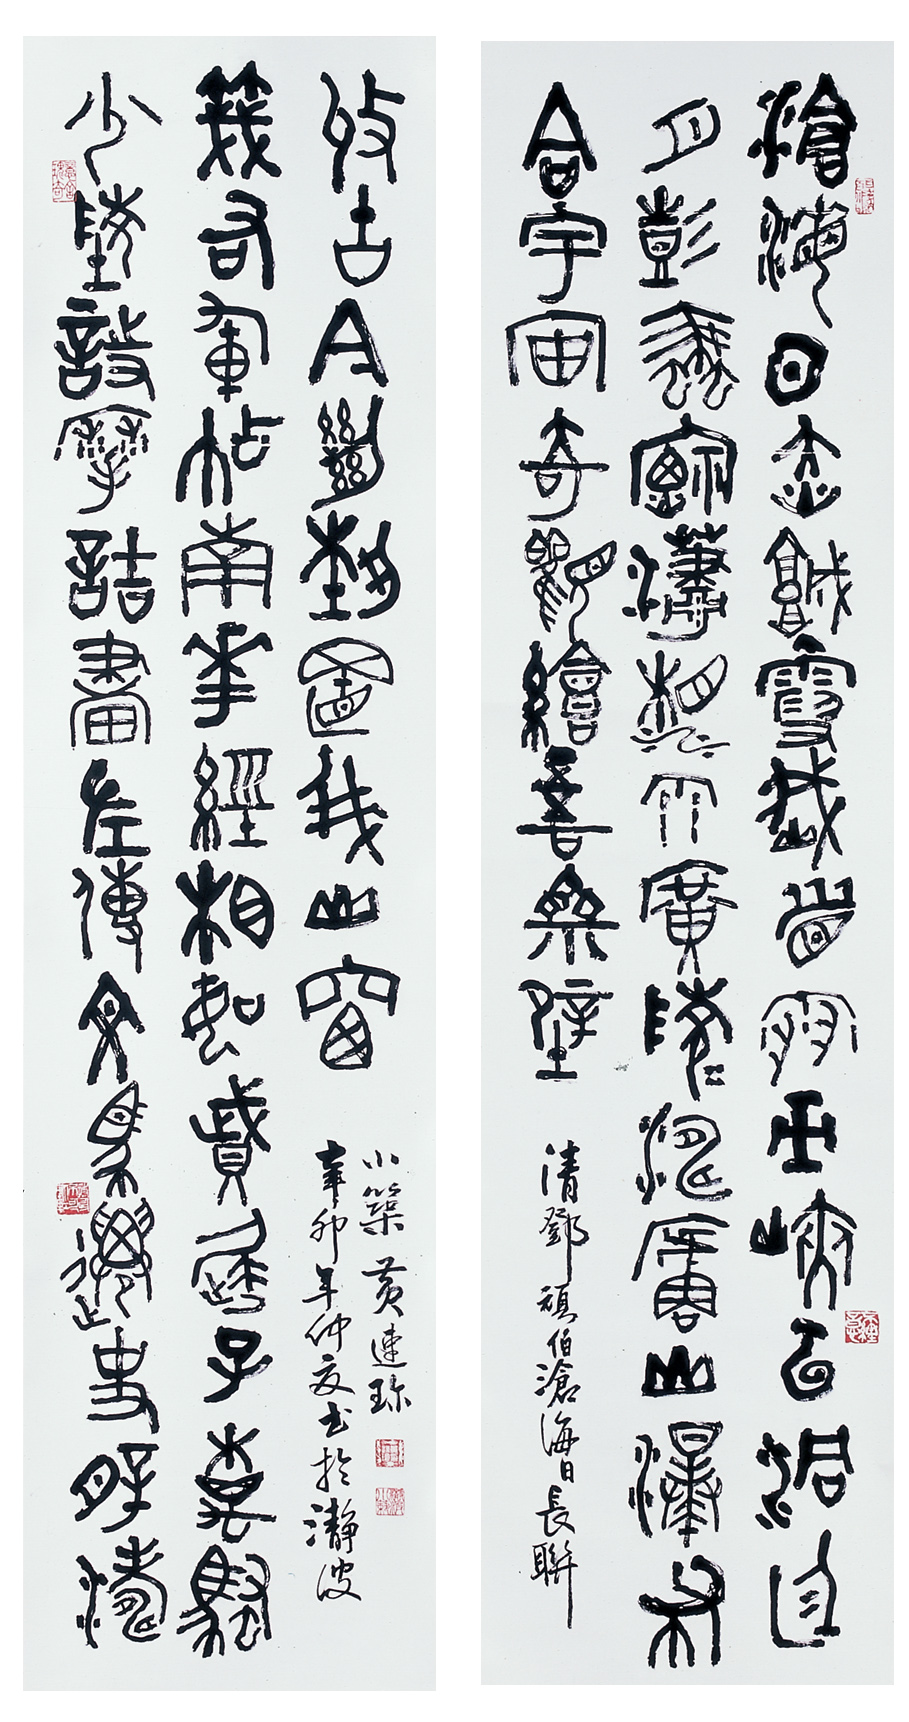 滄海日赤城霞峨眉雪巫峽雲洞庭
月彭蠡煙瀟湘雨廣陵潮廬山瀑布
合宇宙奇觀繪吾齋壁
清鄧頑伯滄海日長聯
少陵詩摩詰畫左傳文馬遷史薛濤
箋右軍帖南華經相如賦屈子離騷
收古今絕藝置我山窗
辛卯年仲夏書於瀞波
小築 黃連珍